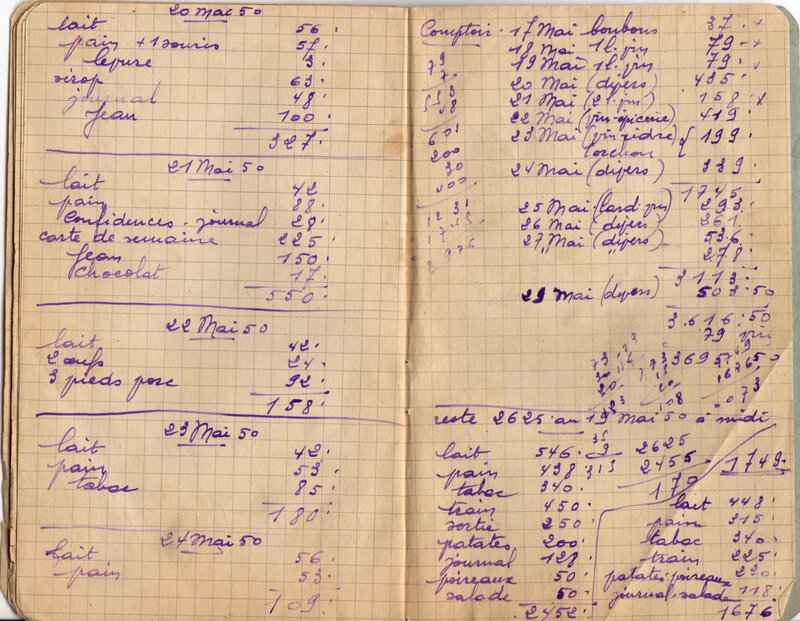 20 Mai 50
lait 56.
pain + 1 souris 57.
levure 3.
sirop 63.
journal 48.
Jean 100.
327.
21 Mai 50
lait 42.
pain 88.
Confidences. journal 28.
carte de semaine 225.
Jean 150.
chocolat 17.
550.
22 Mai 50
lait 42.
2 œufs 24.
3 pieds porc 92.
158.
23 Mai 50
lait 42.
pain 53.
tabac 85.
180.
24 Mai 50
lait 56.
pain 53.
109.
Comptoir. 17 Mai bonbons 37.
18 Mai 1 l. vin 79.
19 Mai 1 l. vin 79.
20 Mai (divers) 435.
21 Mai (2 l. vin) 158.
22 Mai (vin-épicerie) 419.
23 Mai (vin-cidre 199.
torchon)
24 Mai (divers) 339.
1745.
25 Mai (lard vin) 293.
26 Mai (divers) 261.
27 Mai (divers) 536.
" " 278.
3113.
29 Mai (divers) 503.50
3.616.50
79 vin
3695
reste 2625. au 19 Mai 50 à midi
lait 546.
pain 438.
tabac 340.
train 450.
sortie 250.
patates 200.
journal 128.
poireaux 50.
salade 50.
2452.
2625
2455
170
1749.
lait 448.
pain 315.
tabac 340.
train 225.
patates. poireaux 230.
journal. salade 118.
1676